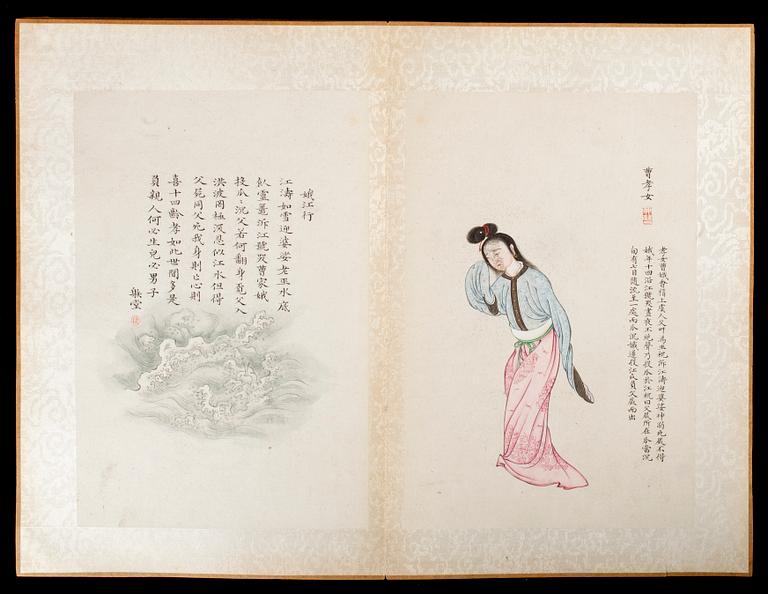 曹孝女
孝女曹娥會稽上虞人父盱為巫祝泝江濤迎婆娑神溺死屍不得
娥年十四沿江號哭晝夜不絕聲乃投瓜於江祝曰父屍所在瓜當沉
旬有七日隨流至一處而瓜沉娥遂投江負父屍而出
娥江行
江濤如雪迎婆娑老巫水底
飲靈鼉泝江號哭曹家娥
投瓜〻沉父若何翻身覓父入
洪波罔極深恩似江水但得
父屍同父死我身則亡心則
喜十四齡孝如此世間多是
負親人何必生兒必男子